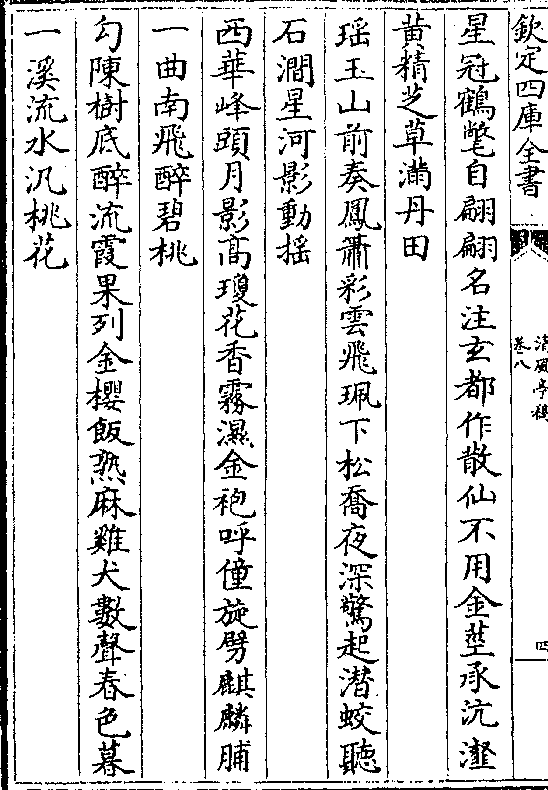 欽定四庫全書
清風亭稿
卷八
四
星冠鶴氅自翩翩名注玄都作散仙不用金莖承沆瀣
黄精芝草滿丹田
瑶玉山前奏鳳簫彩雲飛珮下松喬夜深驚起潜蛟聽
石澗星河影動摇
西華峰頭月影髙瓊花香霧濕金袍呼僮旋劈麒麟脯
一曲南飛醉碧桃
勾陳樹底醉流霞果列金櫻飯熟麻雞犬數聲春色暮
一溪流水汎桃花